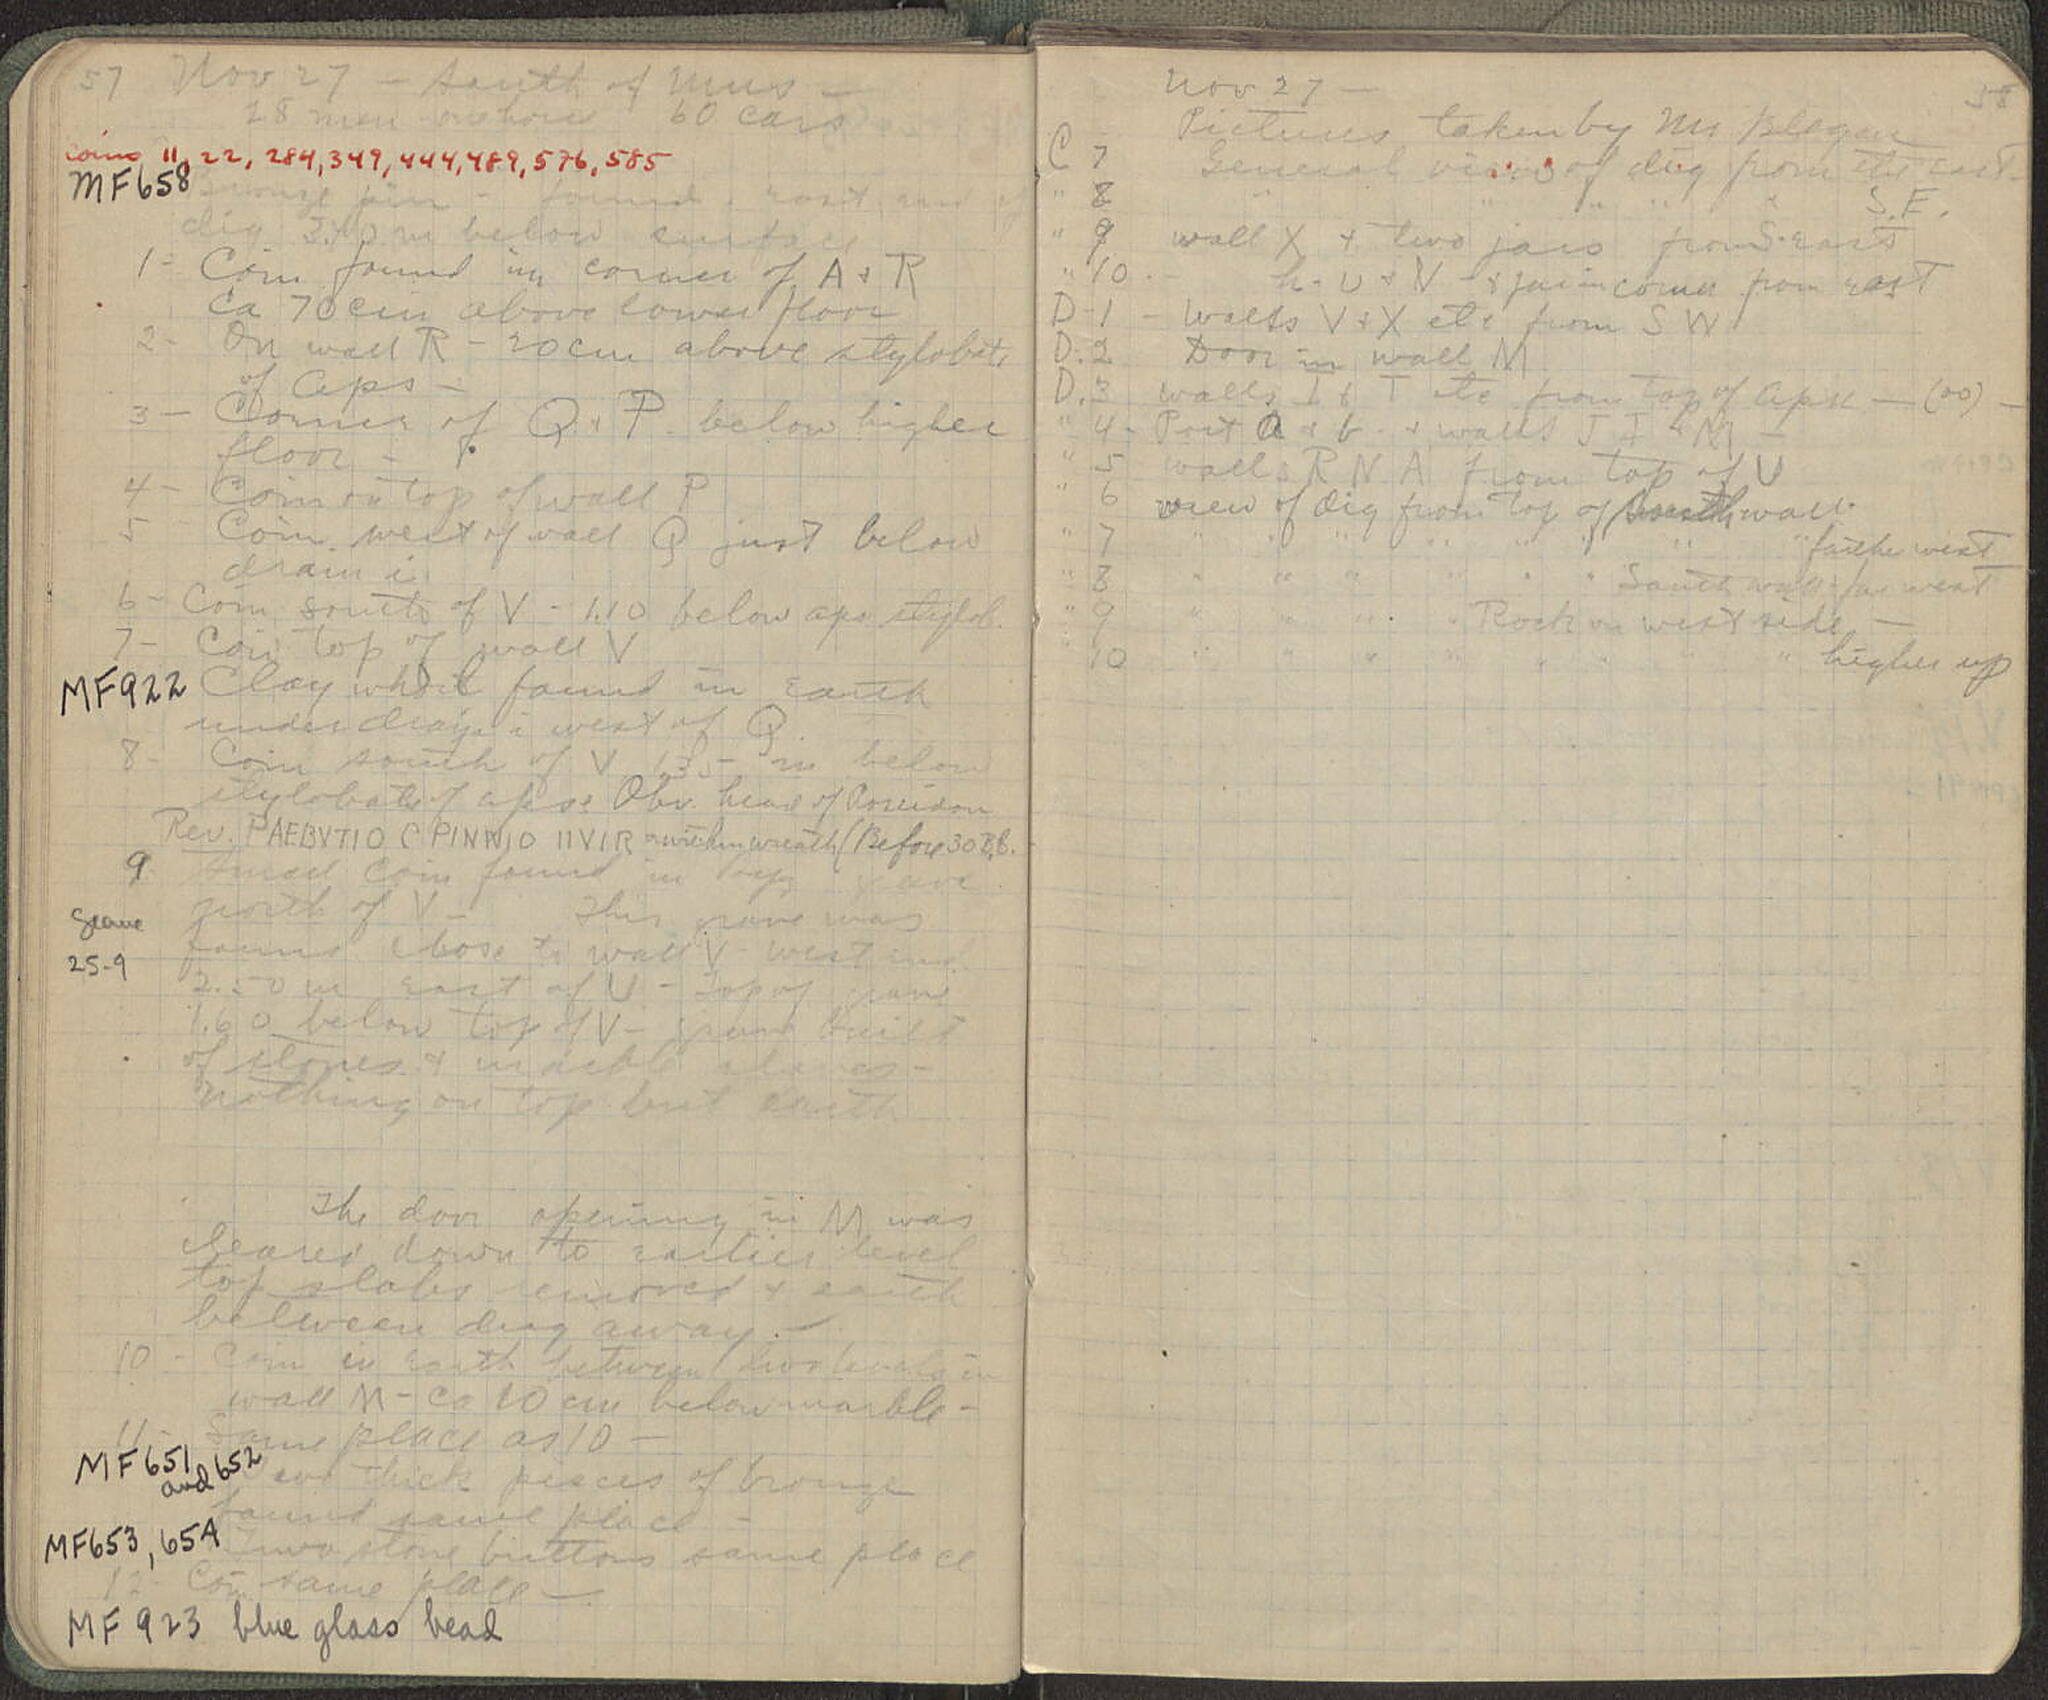 57 Nov 27 - South of Mus -
28 men one horse 60 cars
coins 11, 22, 284, 349, 444, 489, 576, 585
MF658 Bronze pin - found east end of
dig 3.70 m below surface
1- Coin found in corner of A & R
ca 70 cm above lower floor
2- On wall R - 20 cm above stylobate
of Aps -
3- Corner of Q & P below higher
floor -
4- Coin on top of wall P
5 Coin west of wall Q just below
drain i
6- Coin south of V - 1.10 below aps stylob.
7- Coin top of wall V
MF922 Clay whorl found in earth
under drain i west of Q
8- Coin south of V 1.35 m below
stylobate of apse Obv. head of Poseidon
Rev. P AEBVTIO C PINNIO IIVIR within wreath (Before 30 B.C.
9 Small coin found in byz grave
north of V - This grave was
Grave
25-9
found close to wall V west end
2.50 m east of U - Top of grave
1.60 below top of V - grave built
of stones & marble slabs -
nothing on top but earth
The door opening in M was
cleared down to earlier level
top slabs removed & earth
between dug away. -
10- Coin in earth between two levels in
wall M - ca 10 cm below marble -
11- Same place as 10 -
MF651 and 652 Two thick pieces of bronze
found same place -
MF653, 654 Two stone buttons same place
12- Coin same place -
MF 923 blue glass bead
Nov 27 - 58
Pictures taken by Mr Blegen
C 7 General view of dig from the east -
" 8 " " " " " S.E.
" 9 wall X & two jars from S. east
" 10 - h. U & V - & jar in corner from east
D-1 - Walls V & X etc from S W
D.2 Door in wall M
D.3 walls I & T etc from top of apse - (00) -
" 4- Post a & b. & walls J I & M -
" 5 walls R N A from top of U
" 6 view of dig from top of south wall.
" 7 " " " " " " " " farther west
" 8 " " " " " " South wall far west
" 9 " " " " Rock on west side -
" 10 " " " " " " " " higher up